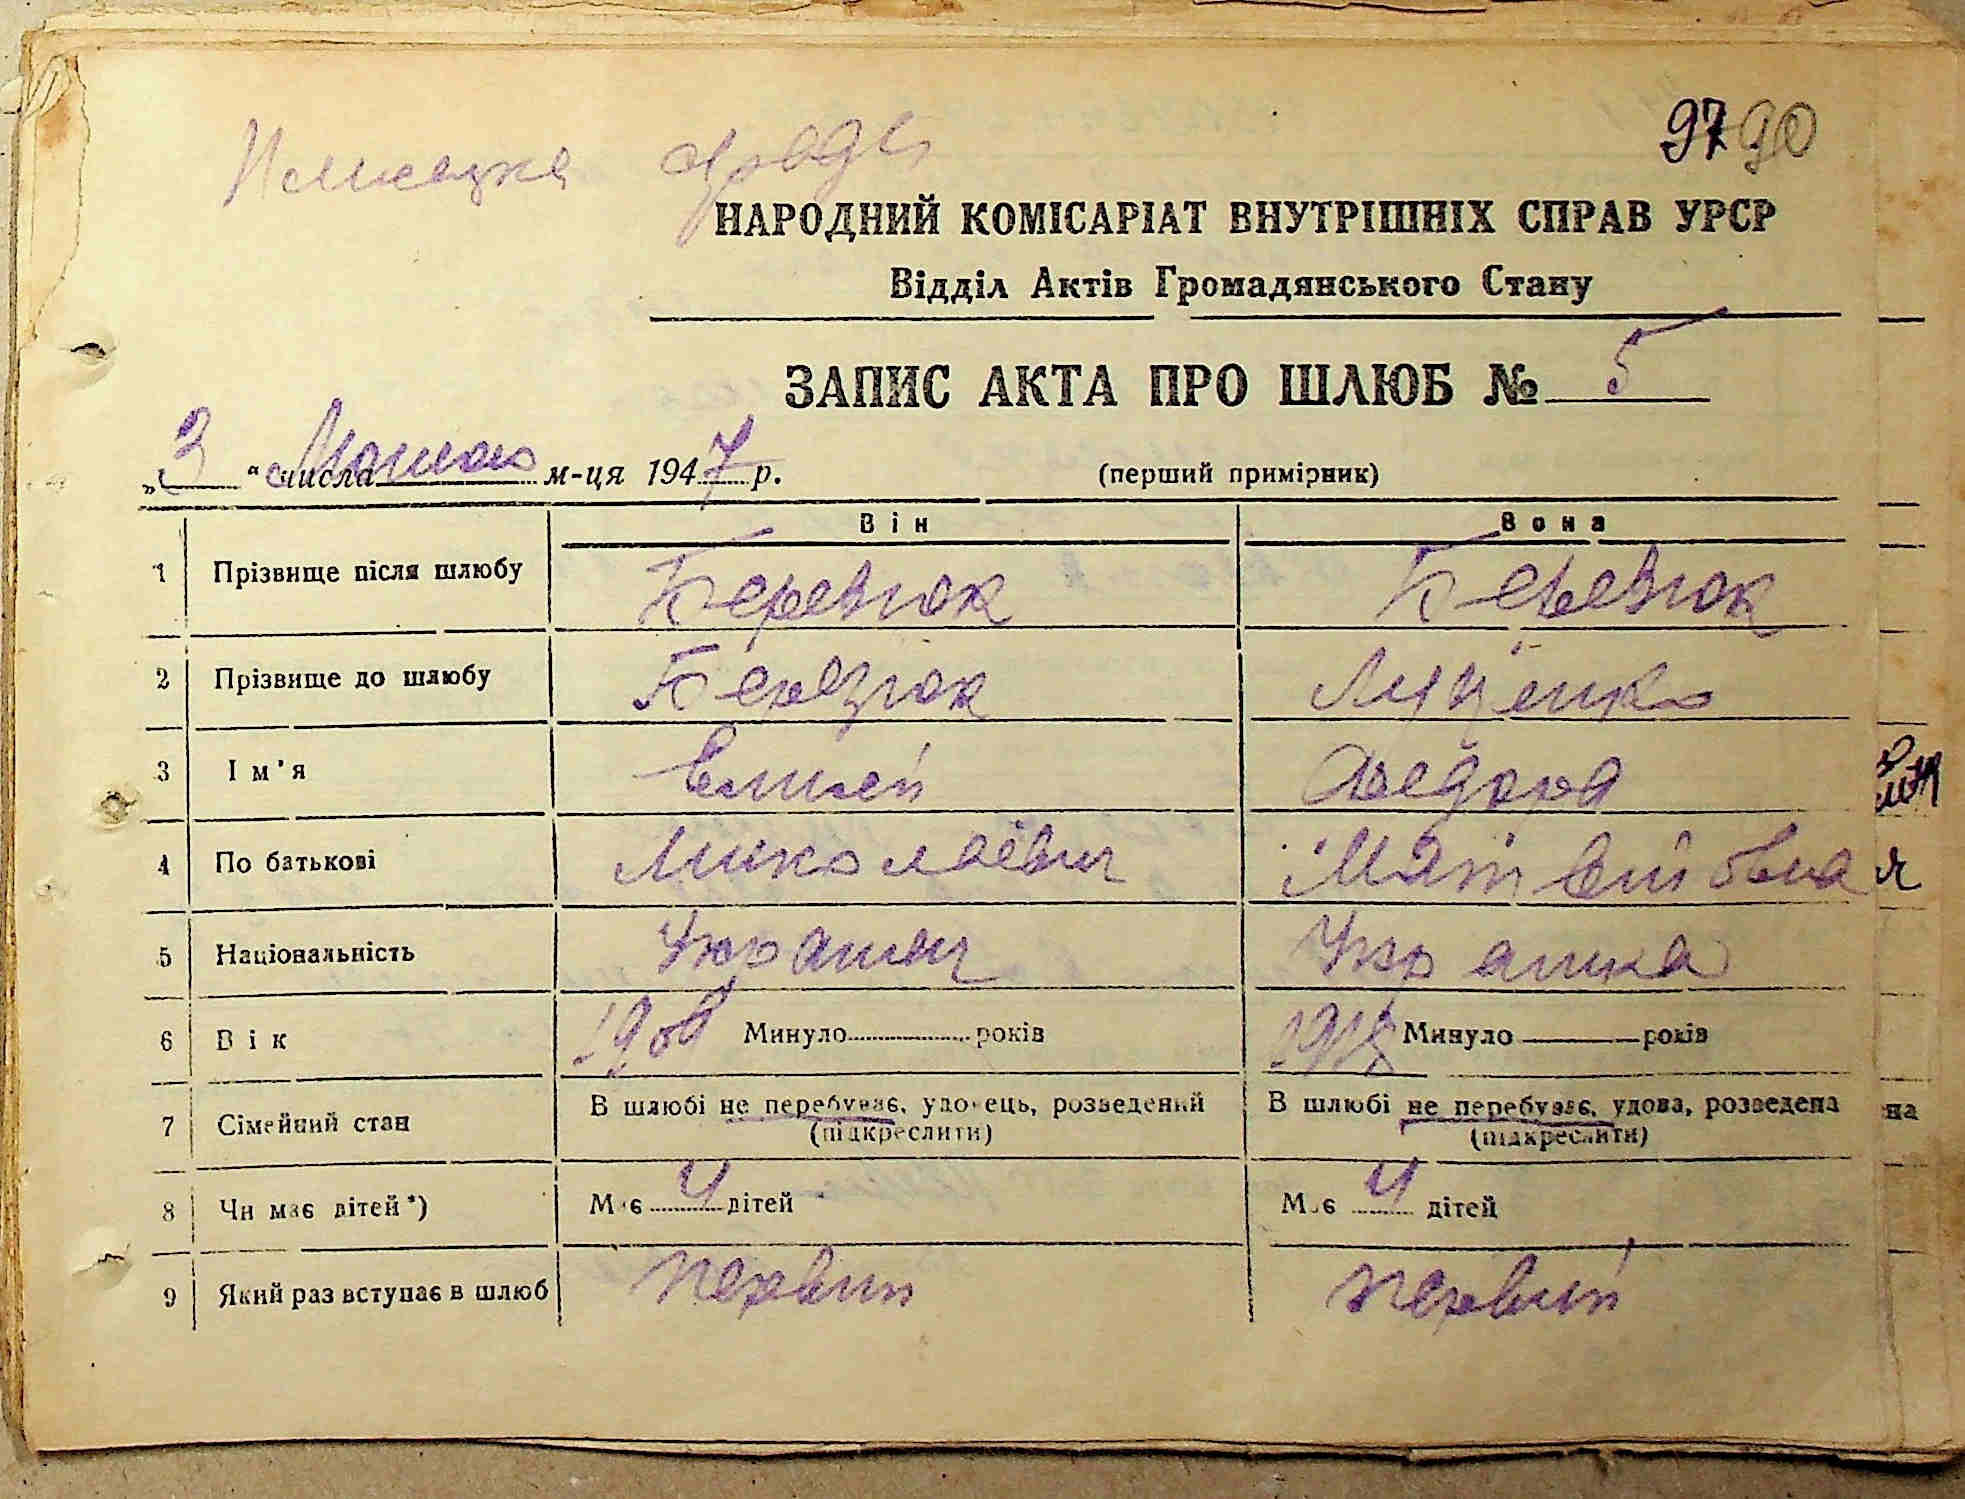 97 90
НАРОДНИЙ КОМІСАРІАТ ВНУТРІШНІХ СПРАВ УРСР
Відділ Актів Громадянського Стану
ЗАПИС АКТА ПРО ШЛЮБ № 5
„3" числа м-ця 1947 р. (перший примірник)
Він Вона
1 Прізвище після шлюбу Березюк Березюк
2 Прізвище до шлюбу Березюк Луценко
3 Ім'я Федора
4 По батькові Миколаєвич
5 Національність
6 Вік 1908 Минуло років 1918 Минуло років
7 Сімейний стан В шлюбі не перебуває, удовець, розведений В шлюбі не перебуває, удова, розведена
(підкреслити) (підкреслити)
8 Чи має дітей *) Має 4 дітей Має 4 дітей
9 Який раз вступає в шлюб первий первий